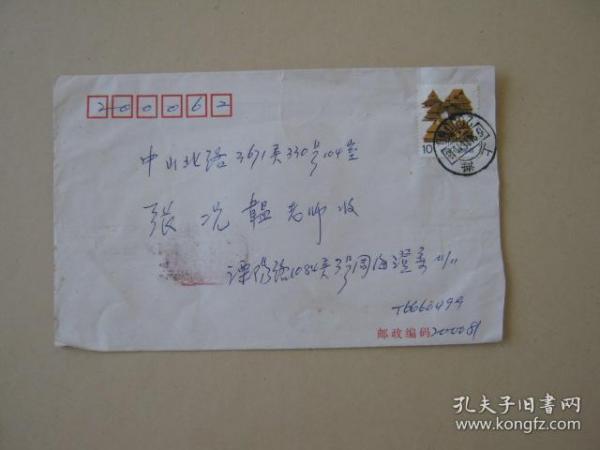 200062
中山北路3671弄330号104室
张 况 韫 老师 收
溧阳路1084弄3号周海澄寄
T6660494
邮政编码200081
10
上海
孔夫子旧书网
www.kongfz.com